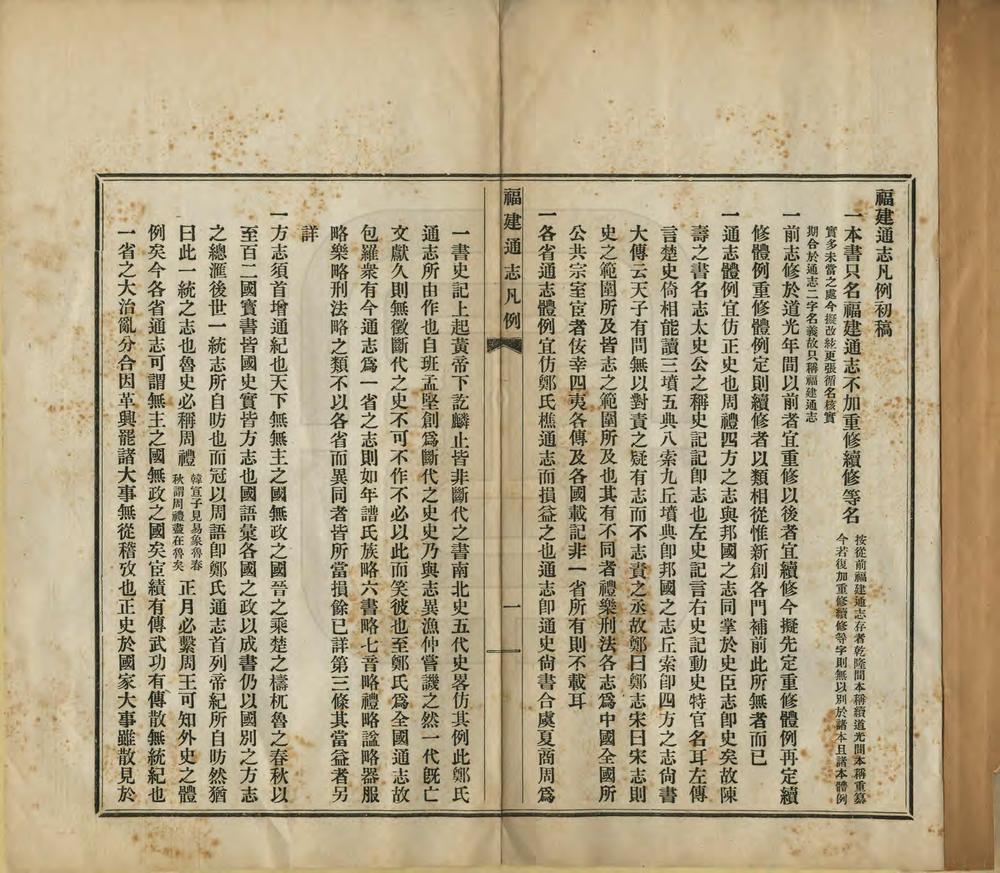 福建通志凡例初稿
一本書只名福建通志不加重修續修等名按從前福建通志存者乾隆間本稱續道光間本稱重纂今若復加重修續修等字則無以別於諸本且諸本體例
實多未當之處今擬改絃更張循名核實期合於通志二字名義故只稱福建通志
一前志修於道光年間以前者宜重修以後者宜續修今擬先定重修體例再定續
修體例重修體例定則續修者以類相從惟新創各門補前此所無者而已
一通志體例宜仿正史也周禮四方之志與邦國之志同掌於史臣志卽史矣故陳
壽之書名志太史公之稱史記記卽志也左史記言右史記動史特官名耳左傳
言楚史倚相能讀三墳五典八索九丘墳典卽邦國之志丘索卽四方之志尙書
大傳云天子有問無以對責之疑有志而不志責之丞故鄭曰鄭志宋曰宋志則
史之範圍所及皆志之範圍所及也其有不同者禮樂刑法各志爲中國全國所
公共宗室宦者佞幸四夷各傳及各國載記非一省所有則不載耳
一各省通志體例宜仿鄭氏樵通志而損益之也通志卽通史尙書合虞夏商周爲
福建通志凡例
一
一書史記上起黃帝下訖麟止皆非斷代之書南北史五代史畧仿其例此鄭氏
通志所由作也自班孟堅創爲斷代之史史乃與志異漁仲嘗譏之然一代旣亡
文獻久則無徵斷代之史不可不作不必以此而笑彼也至鄭氏爲全國通志故
包羅衆有今通志爲一省之志則如年譜氏族略六書略七音略禮略謚略器服
略樂略刑法略之類不以各省而異同者皆所當損餘已詳第三條其當益者另
詳
一方志須首增通紀也天下無無主之國無無政之國晉之乘楚之檮杌魯之春秋以
至百二國寶書皆國史實皆方志也國語彙各國之政以成書仍以國別之方志
之總滙後世一統志所自昉也而冠以周語卽鄭氏通志首列帝紀所自昉然猶
曰此一統之志也魯史必稱周禮韓宣子見易象魯春秋謂周禮盡在魯矣正月必繫周王可知外史之體
例矣今各省通志可謂無主之國無政之國矣宦績有傳武功有傳散無統紀也
一省之大治亂分合因革興罷諸大事無從稽攷也正史於國家大事雖散見於